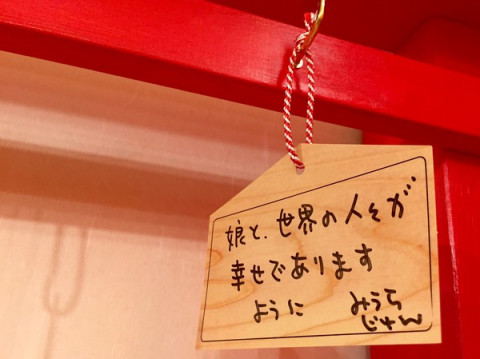 娘と、世界の人々が
幸せであります
ように みうら
じゅん